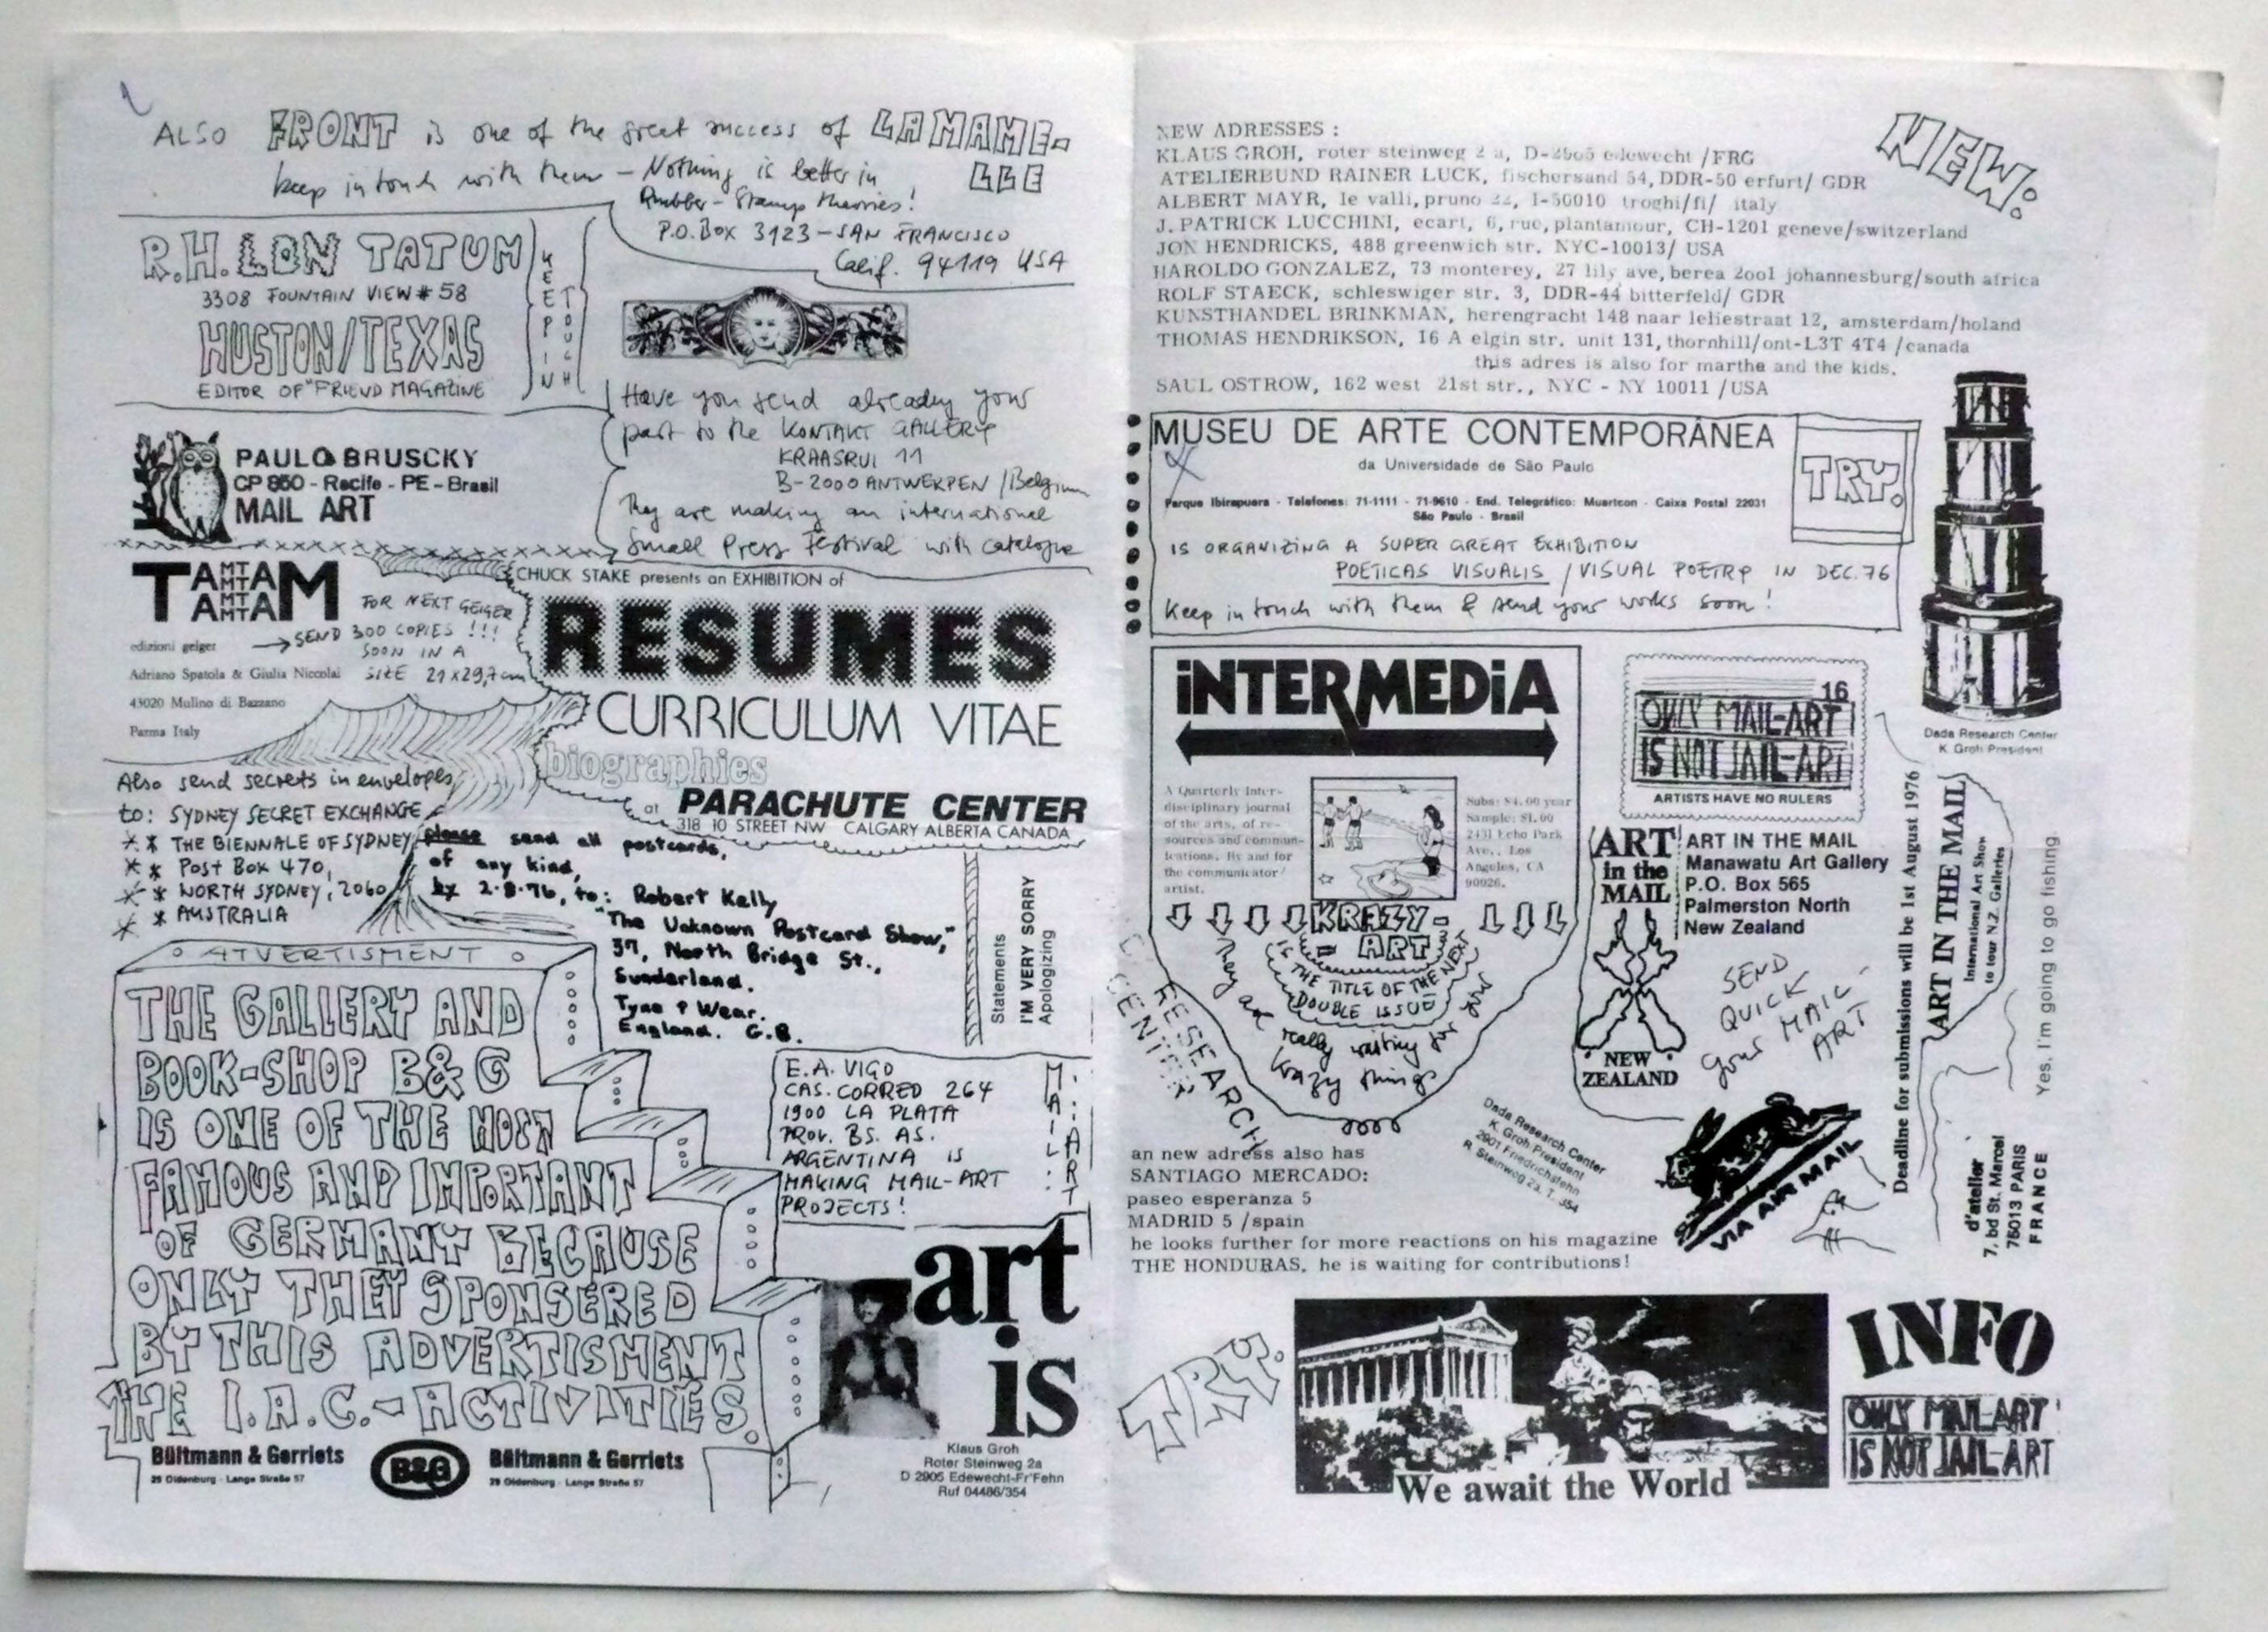 ALSO FRONT is one of the great success of LA MAME-
LLE
keep in touch with them - Nothing is better in
Rubber-Stamp theories!
P.O.Box 3123 - SAN FRANCISCO
Calif. 94119 USA
R.H. LON TATUM
3308 FOUNTAIN VIEW # 58
HUSTON/TEXAS
EDITOR OF "FRIEND MAGAZINE
KEEP IN
TOUGH
Have you send already your
part to the KONTAKT GALLERY
KRAASRUI 11
B-2000 ANTWERPEN / Belgium
They are making an international
Small Press Festival with catalogue
PAULO BRUSCKY
CP 850 - Recife - PE - Brasil
MAIL ART
TAMTAM
FOR NEXT GEIGER
SEND 300 COPIES !!!
SOON IN A
SIZE 21 x 29,7 cm
edizioni geiger
Adriano Spatola & Giulia Niccolai
43020 Mulino di Bazzano
Parma Italy
CHUCK STAKE presents an EXHIBITION of
RESUMES
CURRICULUM VITAE
biographies
at PARACHUTE CENTER
318 10 STREET NW CALGARY ALBERTA CANADA
Also send secrets in envelopes
to: SYDNEY SECRET EXCHANGE
** THE BIENNALE OF SYDNEY
** Post Box 470,
** NORTH SYDNEY, 2060
** AUSTRALIA
please send all postcards,
of any kind,
by 2.8.76, to: Robert Kelly
"The Unknown Postcard Show,"
37, North Bridge St.,
Sunderland.
Tyne & Wear.
England. G.B.
Statements
I'M VERY SORRY
Apologizing
ATVERTISMENT
THE GALLERY AND
BOOK-SHOP B&G
IS ONE OF THE MOST
FAMOUS AND IMPORTANT
OF GERMANY BECAUSE
ONLY THEY SPONSERED
BY THIS ADVERTISMENT
THE I.A.C.-ACTIVITIES.
Bültmann & Gerriets
29 Oldenburg - Lange Straße 57
B&G
Bültmann & Gerriets
29 Oldenburg - Lange Straße 57
E.A. VIGO
CAS. CORREO 264
1900 LA PLATA
PROV. BS. AS.
ARGENTINA IS
MAKING MAIL-ART
PROJECTS!
MAIL
ART
art
is
Klaus Groh
Roter Steinweg 2a
D 2905 Edewecht-Fr'Fehn
Ruf 04486/354
NEW:
NEW ADRESSES :
KLAUS GROH, roter steinweg 2 a, D-2905 edewecht /FRG
ATELIERBUND RAINER LUCK, fischersand 54, DDR-50 erfurt/ GDR
ALBERT MAYR, le valli, pruno 22, I-50010 troghi/fi/ italy
J. PATRICK LUCCHINI, ecart, 6, rue, plantamour, CH-1201 geneve/switzerland
JON HENDRICKS, 488 greenwich str. NYC-10013/ USA
HAROLDO GONZALEZ, 73 monterey, 27 lily ave, berea 2001 johannesburg/south africa
ROLF STAECK, schleswiger str. 3, DDR-44 bitterfeld/ GDR
KUNSTHANDEL BRINKMAN, herengracht 148 naar leliestraat 12, amsterdam/holand
THOMAS HENDRIKSON, 16 A elgin str. unit 131, thornhill/ont-L3T 4T4 /canada
this adres is also for marthe and the kids.
SAUL OSTROW, 162 west 21st str., NYC - NY 10011 /USA
MUSEU DE ARTE CONTEMPORÂNEA
da Universidade de São Paulo
Parque Ibirapuera - Telefones: 71-1111 - 71-9610 - End. Telegráfico: Muartcon - Caixa Postal 22031
São Paulo - Brasil
TRY.
IS ORGANIZING A SUPER GREAT EXHIBITION
POETICAS VISUALIS / VISUAL POETRY IN DEC. 76
Keep in touch with them & send your works soon!
Dada Research Center
K. Groh President
iNTERMEDiA
A Quarterly Inter-
disciplinary journal
of the arts, of re-
sources and commun-
ications. By and for
the communicator/
artist.
Subs: $4.00 year
Sample: $1.00
2431 Echo Park
Ave., Los
Angeles, CA
90026.
KRAZY-
ART
IS THE TITLE OF THE NEXT
DOUBLE ISSUE
They are really waiting for your
krazy things
RESEARCH
CENTER
16
ONLY MAIL-ART
IS NOT JAIL-ART
ARTISTS HAVE NO RULERS
ART
in the
MAIL
NEW
ZEALAND
ART IN THE MAIL
Manawatu Art Gallery
P.O. Box 565
Palmerston North
New Zealand
SEND
QUICK
your MAIL-
ART
Deadline for submissions will be 1st August 1976
ART IN THE MAIL
International Art Show
to tour N.Z. Galleries
Yes. I'm going to go fishing
d'atelier
7. bd St. Marcel
75013 PARIS
FRANCE
Dada Research Center
K. Groh President
2901 Friedrichsfehn
R. Steinweg 2a. T. 354
VIA AIR MAIL
an new adress also has
SANTIAGO MERCADO:
paseo esperanza 5
MADRID 5 /spain
he looks further for more reactions on his magazine
THE HONDURAS, he is waiting for contributions!
TRY.
We await the World
INFO
ONLY MAIL-ART
IS NOT JAIL-ART